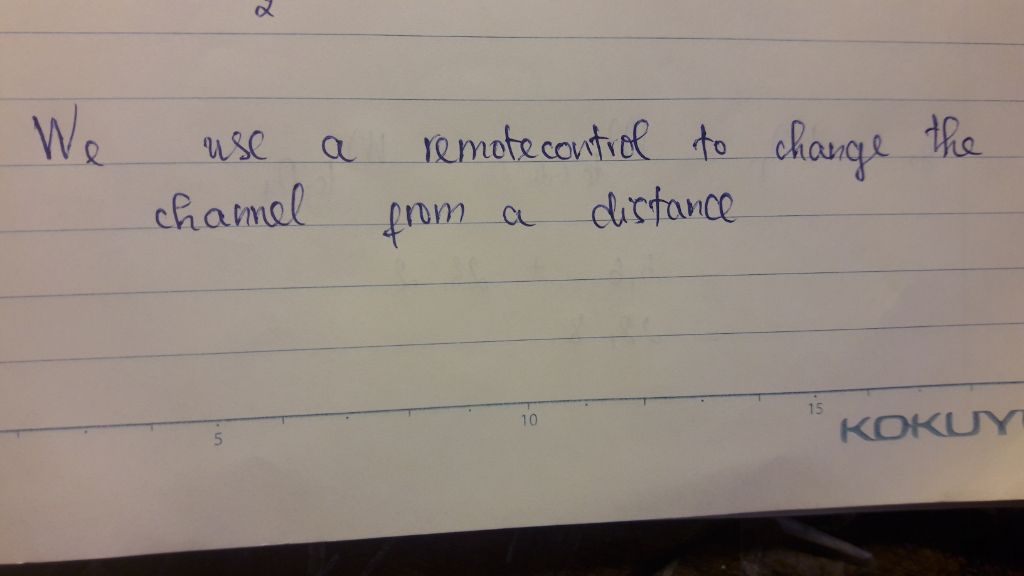 2
We use a remotecontrol to change the
channel from a distance
5 10 15
KOKUYO